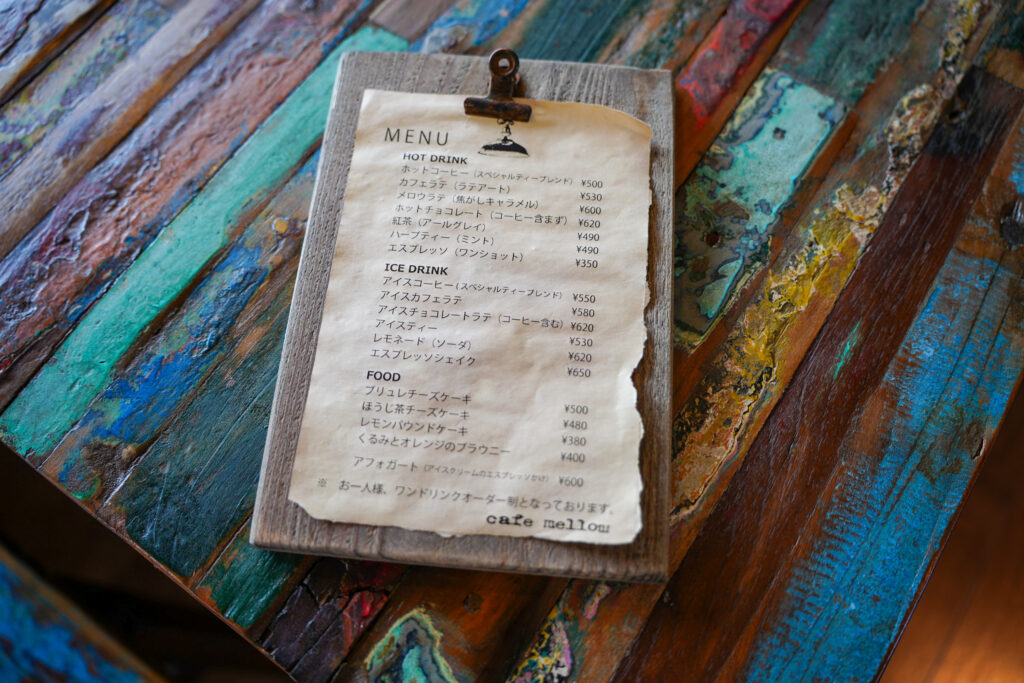 MENU
HOT DRINK
ホットコーヒー（スペシャルティーブレンド） ¥500
カフェラテ（ラテアート） ¥530
メロウラテ（焦がしキャラメル） ¥600
ホットチョコレート（コーヒー含まず） ¥620
紅茶（アールグレイ） ¥490
ハーブティー（ミント） ¥490
エスプレッソ（ワンショット） ¥350
ICE DRINK
アイスコーヒー（スペシャルティーブレンド） ¥550
アイスカフェラテ ¥580
アイスチョコレートラテ（コーヒー含む） ¥620
アイスティー ¥530
レモネード（ソーダ） ¥620
エスプレッソシェイク ¥650
FOOD
ブリュレチーズケーキ ¥500
ほうじ茶チーズケーキ ¥480
レモンパウンドケーキ ¥380
くるみとオレンジのブラウニー ¥400
アフォガート（アイスクリームのエスプレッソかけ） ¥600
※ お一人様、ワンドリンクオーダー制となっております。
cafe mellow